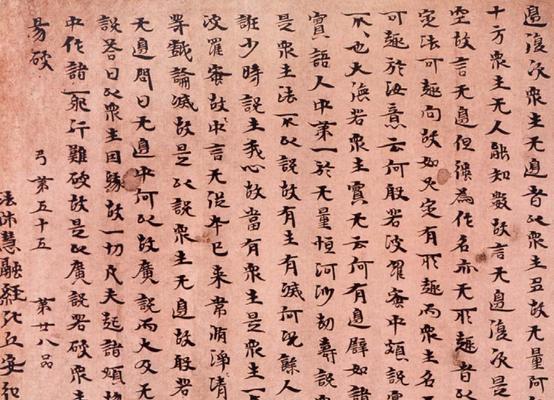 邊復次眾生无邊者以眾生多故无量阿
十方眾生无人能知數故言无邊復次是
空故言无邊但為作名亦无所趣者以
定法可趣向故如火定有所趣而眾生名
可趣於汝意云何般若波羅蜜中頗說
不不也大德若眾生實无云何有邊譬如諸
實語人中第一於无量恒河沙劫壽說
是眾生法不以說故有生有滅何況餘人
誑少時說生我心故當有眾生是眾生
波羅蜜故中言无從本已來常清淨
等戲論滅故是以說眾生无邊故般若
无邊問曰无邊中何以故廣說而大及无
說答曰以眾生因緣故一切凡夫起諸煩
中作諸邪行難破故是以廣說若破眾生
易破
弓第五十五 第廿八品
法師慧融經比丘安弘